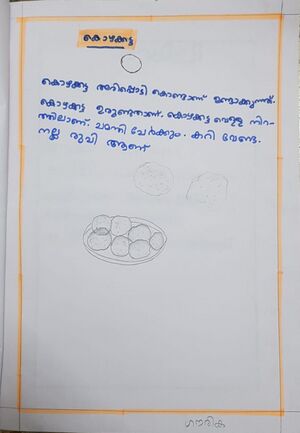 കൊഴക്കട്ട
കൊഴക്കട്ട അരിപ്പൊടി കൊണ്ടാണ് ഉണ്ടാക്കുന്നത്.
കൊഴക്കട്ട ഉരുണ്ടതാണ്. കൊഴക്കട്ട വെള്ള നിറ-
ത്തിലാണ്. ചമന്നി ചേർക്കും. കറി വേണ്ട.
നല്ല രുചി ആണ്
ഗൗരിക